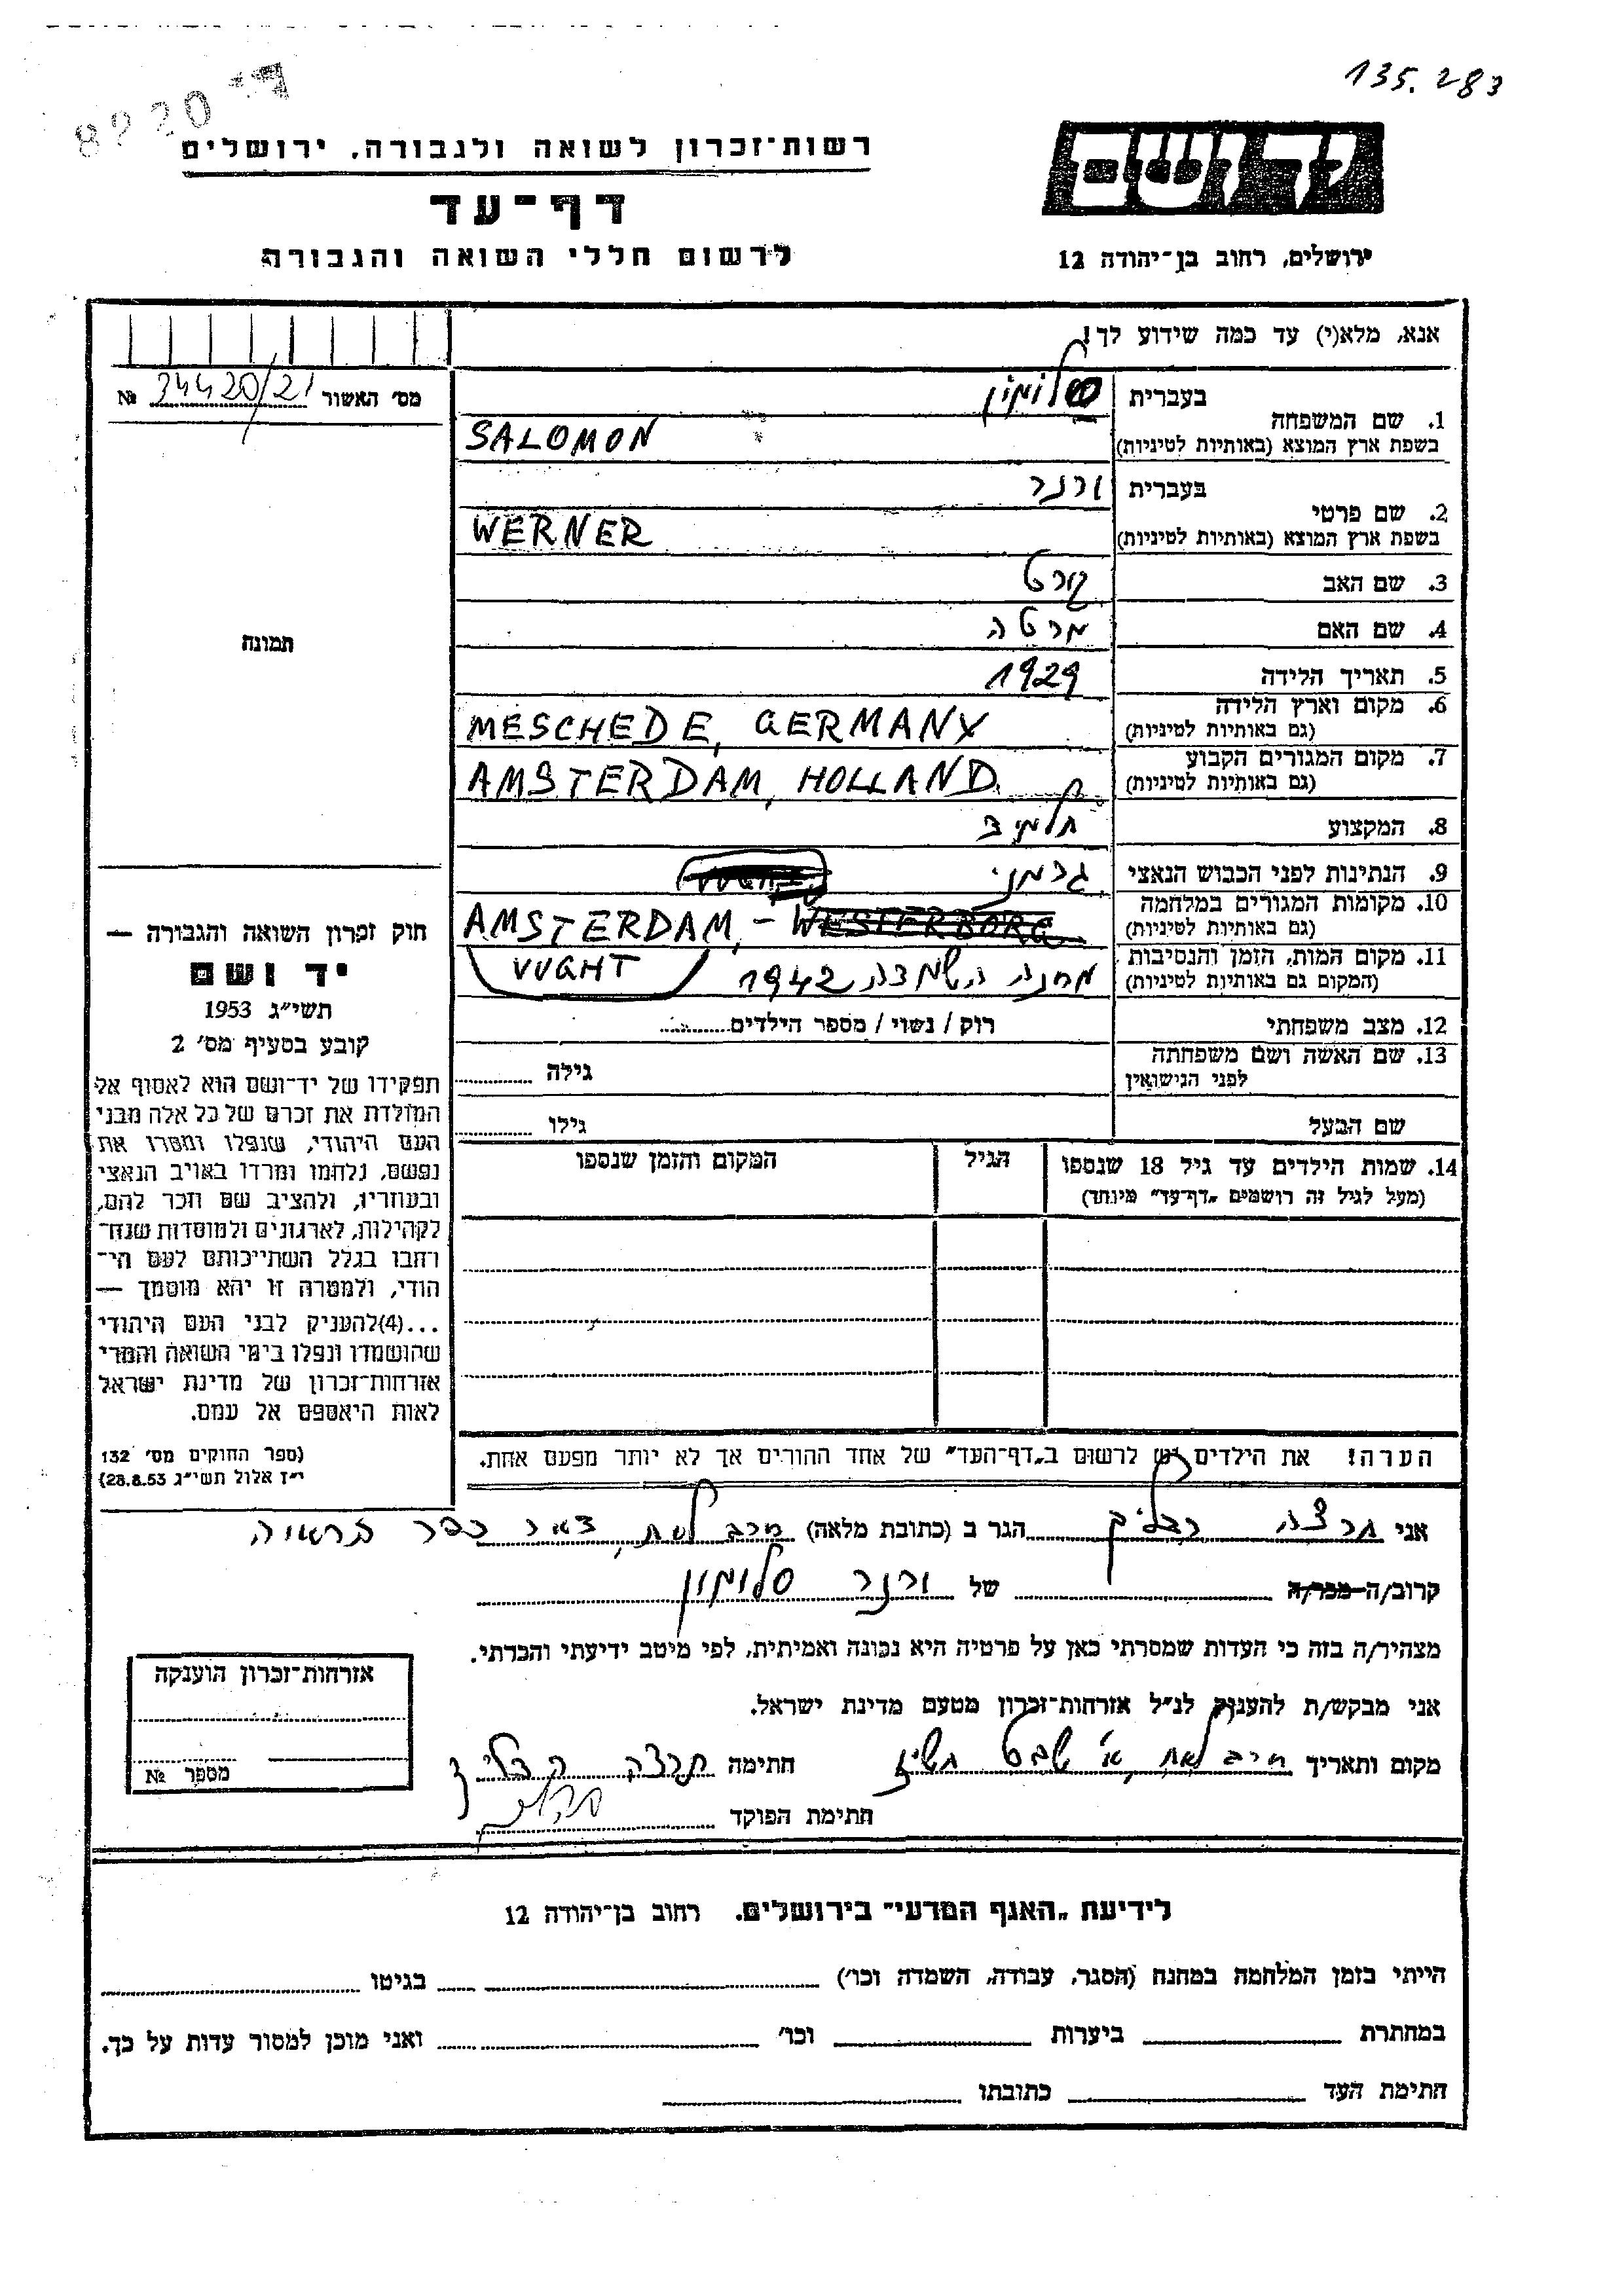 135.283
יד ושם
ירושלים, רחוב בן־יהודה 12
רשות־זכרון לשואה ולגבורה, ירושלים
דף־עד
לרשום חללי השואה והגבורה
אנא, מלא(י) עד כמה שידוע לך!
מס' האשור 34420/21 №
1. שם המשפחה
בעברית סלומון
בשפת ארץ המוצא (באותיות לטיניות) SALOMON
2. שם פרטי
בעברית ורנר
בשפת ארץ המוצא (באותיות לטיניות) WERNER
3. שם האב קורט
4. שם האם מרטה
5. תאריך הלידה 1929
6. מקום וארץ הלידה
(גם באותיות לטיניות) MESCHEDE, GERMANY
7. מקום המגורים הקבוע
(גם באותיות לטיניות) AMSTERDAM, HOLLAND
8. המקצוע תלמיד
9. הנתינות לפני הכבוש הנאצי גרמני
10. מקומות המגורים במלחמה
(גם באותיות לטיניות) AMSTERDAM, - WESTERBORG
11. מקום המות, הזמן והנסיבות
(המקום גם באותיות לטיניות) מחנה השמדה 1942 VUGHT
12. מצב משפחתי רוק / נשוי / מספר הילדים
13. שם האשה ושם משפחתה
לפני הנישואין גילה
שם הבעל גילו
14. שמות הילדים עד גיל 18 שנספו
(מעל לגיל זה רושמים "דף־עד" מיוחד)
הגיל
המקום והזמן שנספו
הערה! את הילדים יש לרשום ב"דף־העד" של אחד ההורים אך לא יותר מפעם אחת.
תמונה
חוק זכרון השואה והגבורה —
יד ושם
תשי"ג 1953
קובע בסעיף מס' 2
תפקידו של יד־ושם הוא לאסוף אל
המולדת את זכרם של כל אלה מבני
העם היהודי, שנפלו ומסרו את
נפשם, נלחמו ומרדו באויב הנאצי
ובעוזריו, ולהציב שם וזכר להם,
לקהילות, לארגונים ולמוסדות שנח־
רבו בגלל השתייכותם לעם הי־
הודי, ולמטרה זו יהא מוסמך —
...(4)להעניק לבני העם היהודי
שהושמדו ונפלו בימי השואה והמרי
אזרחות־זכרון של מדינת ישראל
לאות היאספם אל עמם.
(ספר החוקים מס' 132
י"ז אלול תשי"ג 28.8.53)
אני תרצה הגר ב (כתובת מלאה) דאר כפר
קרוב/ה מכר/ה של ורנר סלומון
מצהיר/ה בזה כי העדות שמסרתי כאן על פרטיה היא נכונה ואמיתית, לפי מיטב ידיעתי והכרתי.
אני מבקש/ת להעניק לנ"ל אזרחות־זכרון מטעם מדינת ישראל.
מקום ותאריך שבט חתימה תרצה
חתימת הפוקד
אזרחות־זכרון הוענקה
מספר №
לידיעת "האגף המדעי" בירושלים. רחוב בן־יהודה 12
הייתי בזמן המלחמה במחנה (הסגר, עבודה, השמדה וכו') בגיטו
במחתרת ביערות וכו' ואני מוכן למסור עדות על כך.
חתימת העד כתובתו